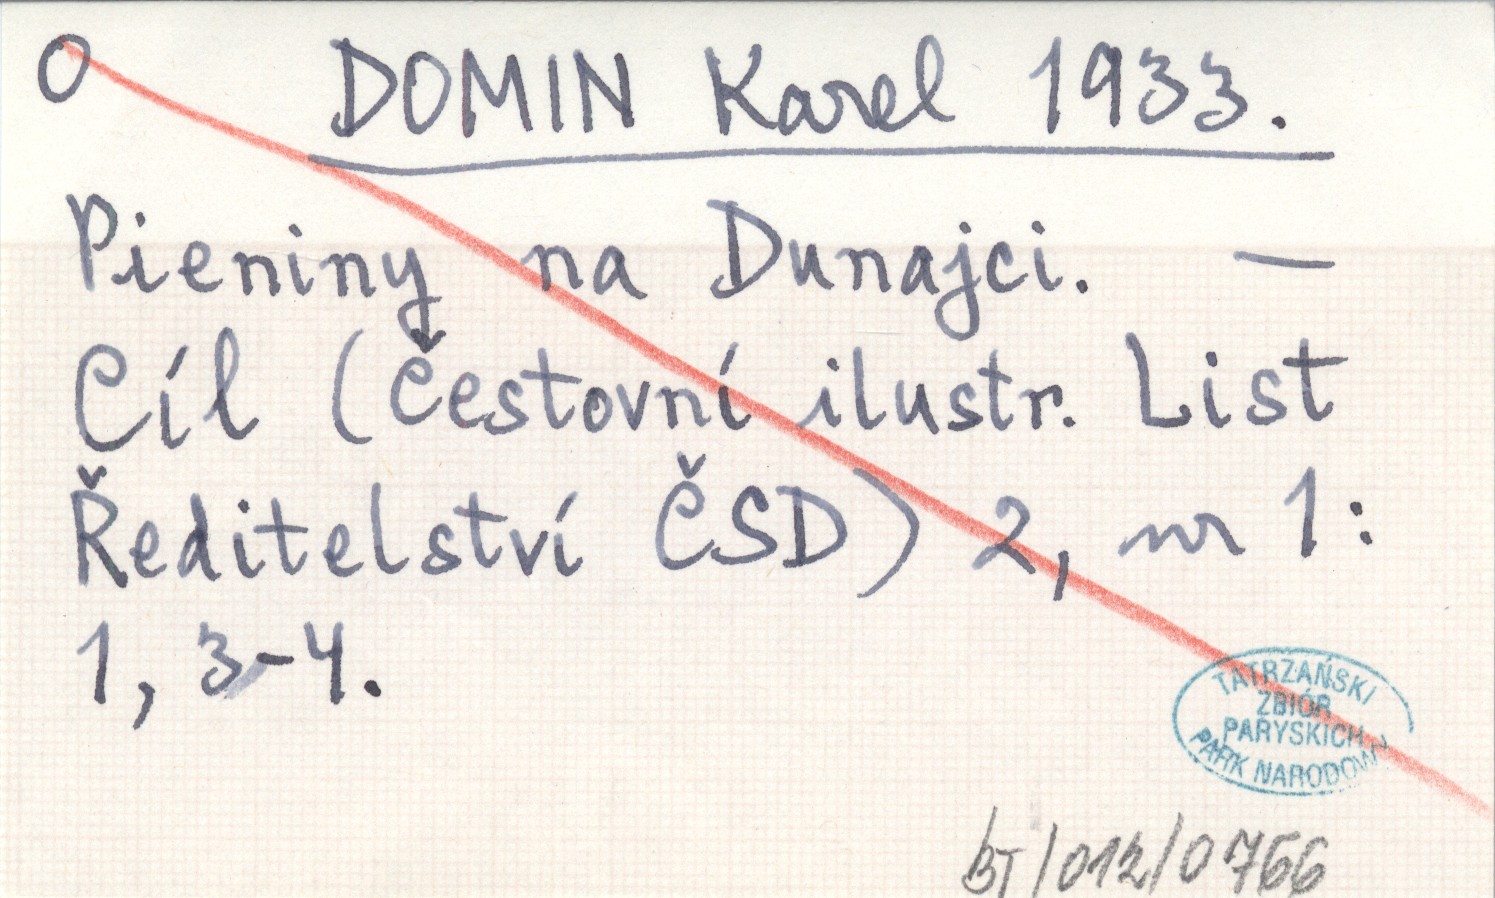 O DOMIN Karel 1933.
Pieniny na Dunajci. —
Cíl (Čestovní ilustr. List
Ředitelství ČSD) 2, nr 1:
1, 3-4.
TATRZAŃSKI
ZBIÓR
PARYSKICH
PARK NARODOWY
BT/012/0766